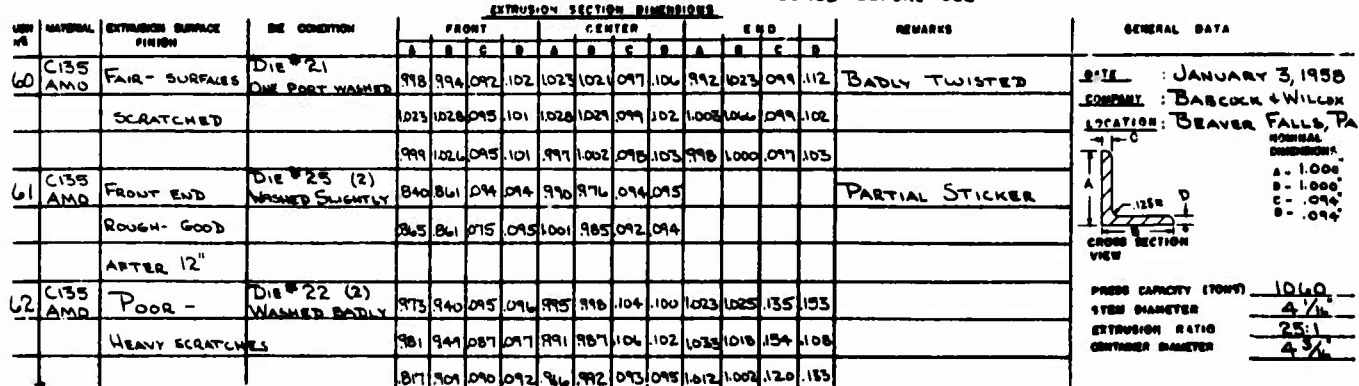 EXTRUSION SECTION DIMENSIONS
USN Nº MATERIAL EXTRUSION SURFACE FINISH DIE CONDITION FRONT CENTER END REMARKS GENERAL DATA
A B C D A B C D A B C D
60 C135 AMO FAIR - SURFACES DIE #21 ONE PORT WASHED .998 .994 .092 .102 1.023 1.021 .097 .106 .992 1.023 .099 .112 BADLY TWISTED
SCRATCHED 1.023 1.028 .095 .101 1.028 1.029 .099 .102 1.003 1.066 .099 .102
.999 1.026 .095 .101 .997 1.002 .098 .103 .998 1.000 .097 .103
61 C135 AMO FRONT END DIE #25 (2) WASHED SLIGHTLY .840 .861 .094 .094 .990 .976 .094 .095 PARTIAL STICKER
ROUGH - GOOD .865 .861 .075 .095 1.001 .985 .092 .094
AFTER 12"
62 C135 AMO POOR - DIE #22 (2) WASHED BADLY .973 .940 .095 .096 .995 .998 .104 .100 1.023 1.025 .135 .153
HEAVY SCRATCHES .981 .949 .087 .097 .991 .987 .106 .102 1.033 1.018 .154 .108
.817 .909 .090 .092 .966 .992 .093 .095 1.012 1.002 .120 .133
DATE : JANUARY 3, 1958
COMPANY : BABCOCK & WILCOX
LOCATION : BEAVER FALLS, PA
NOMINAL DIMENSIONS
A - 1.000"
B - 1.000"
C - .094"
D - .094"
C
A
.125R D
B
CROSS SECTION VIEW
PRESS CAPACITY (TONS) 1060
STEM DIAMETER 4 1/16"
EXTRUSION RATIO 25:1
CONTAINER DIAMETER 4 3/16"